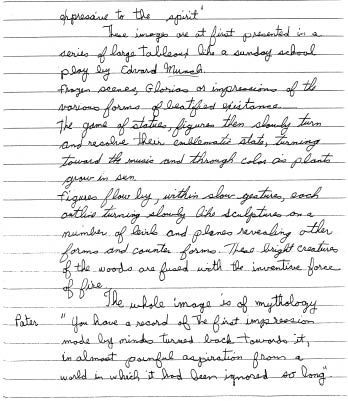 oppresive to the spirit"
These images are at first presented in a
series of large tableaux like a sunday school
play by Edvard Munch.
Frozen scenes, Glorias or impressions of the
various forms of beatified existance.
The game of statues, figures then slowly turn
and resolve their emblematic state, turning
toward the music and through color as plants
grow in sun.
Figures flow by, within slow gestures, each
outline turning slowly like sculptures on a
number of levels and planes revealing other
forms and counter forms. These bright creatures
of the woods are fused with the inventive force
of fire.
The whole image is of mythology
Pater "You have a record of the first impression
made by minds turned back towards it,
in almost painful aspiration from a
world in which it had been ignored so long"